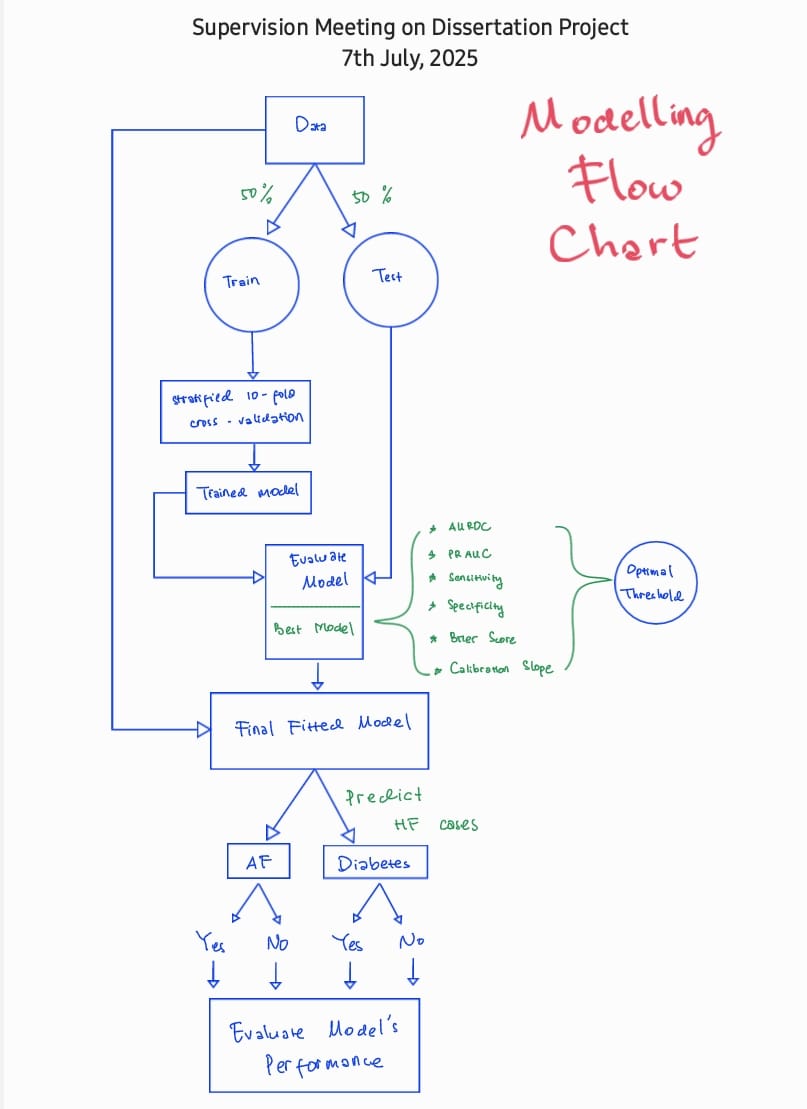 Supervision Meeting on Dissertation Project
7th July, 2025
Modelling
Flow
Chart
Data
50%
50 %
Train
Test
Stratified 10-fold
cross - validation
Trained Model
Evaluate
Model
Best Model
* AUROC
* PR AUC
* Sensitivity
* Specificity
* Brier Score
* Calibration Slope
Optimal
Threshold
Final Fitted Model
Predict
HF cases
AF
Diabetes
Yes
No
Yes
No
Evaluate Model's
Performance